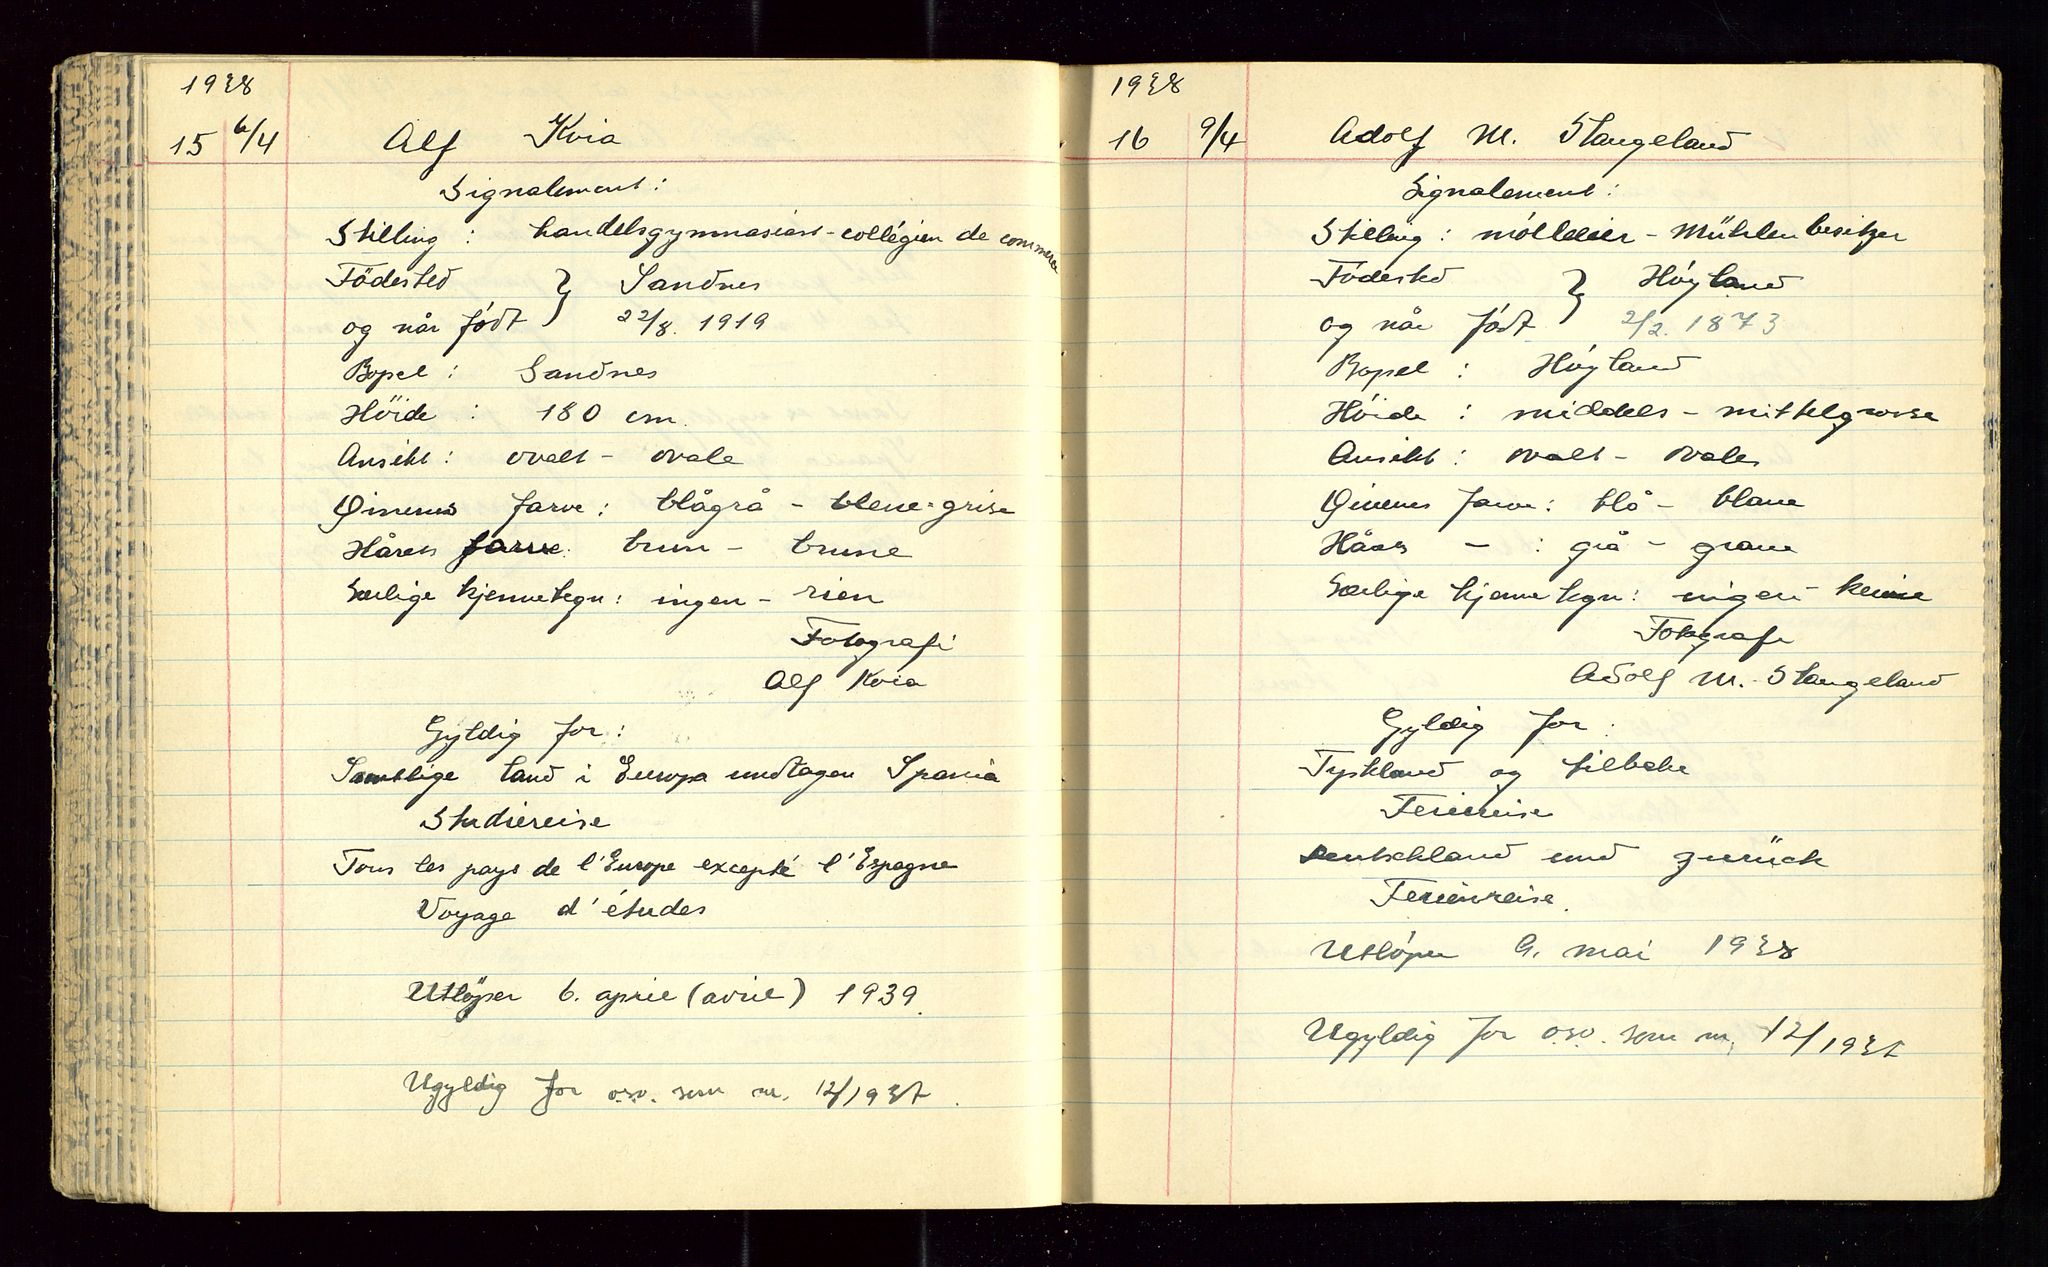 1938
15 6/4 Alf Kvia
Signalement:
Stilling: handelsgymnasiast - collégien de commerce
Födested } Sandnes
og når født 22/8. 1919
Bopel: Sandnes
Höide: 180 cm.
Ansikt: ovalt - ovale
Øinenes farve: blågrå - bleue-grise
Hårets farve: brun - brune
Særlige kjennetegn: ingen - rien
Fotografi
Alf Kvia
Gyldig for:
Samtlige land i Europa undtagen Spania
Studiereise
Tous les pays de l'Europe excepté l'Espagne
Voyage d'études
Utløper 6. april (avril) 1939.
Ugyldig for o.s.v. som nr. 12/1937.
1938
16 9/4 Adolf M. Stangeland
Signalement:
Stilling: mölleeier - Mühlenbesitzer
Födested } Höyland
og når født 2/2. 1873
Bopel: Höyland
Höide: middels - mittelgrosse
Ansikt: ovalt - ovales
Øinenes farve: blå - blaue
Hårets - : grå - graue
Særlige kjennetegn: ingen - keine
Fotografi
Adolf M. Stangeland
Gyldig for:
Tyskland og tilbake
Feriereise
Deutschland und zurück
Ferienreise.
Utlöper 9. mai 1938
Ugyldig for o.s.v. som nr. 12/1937